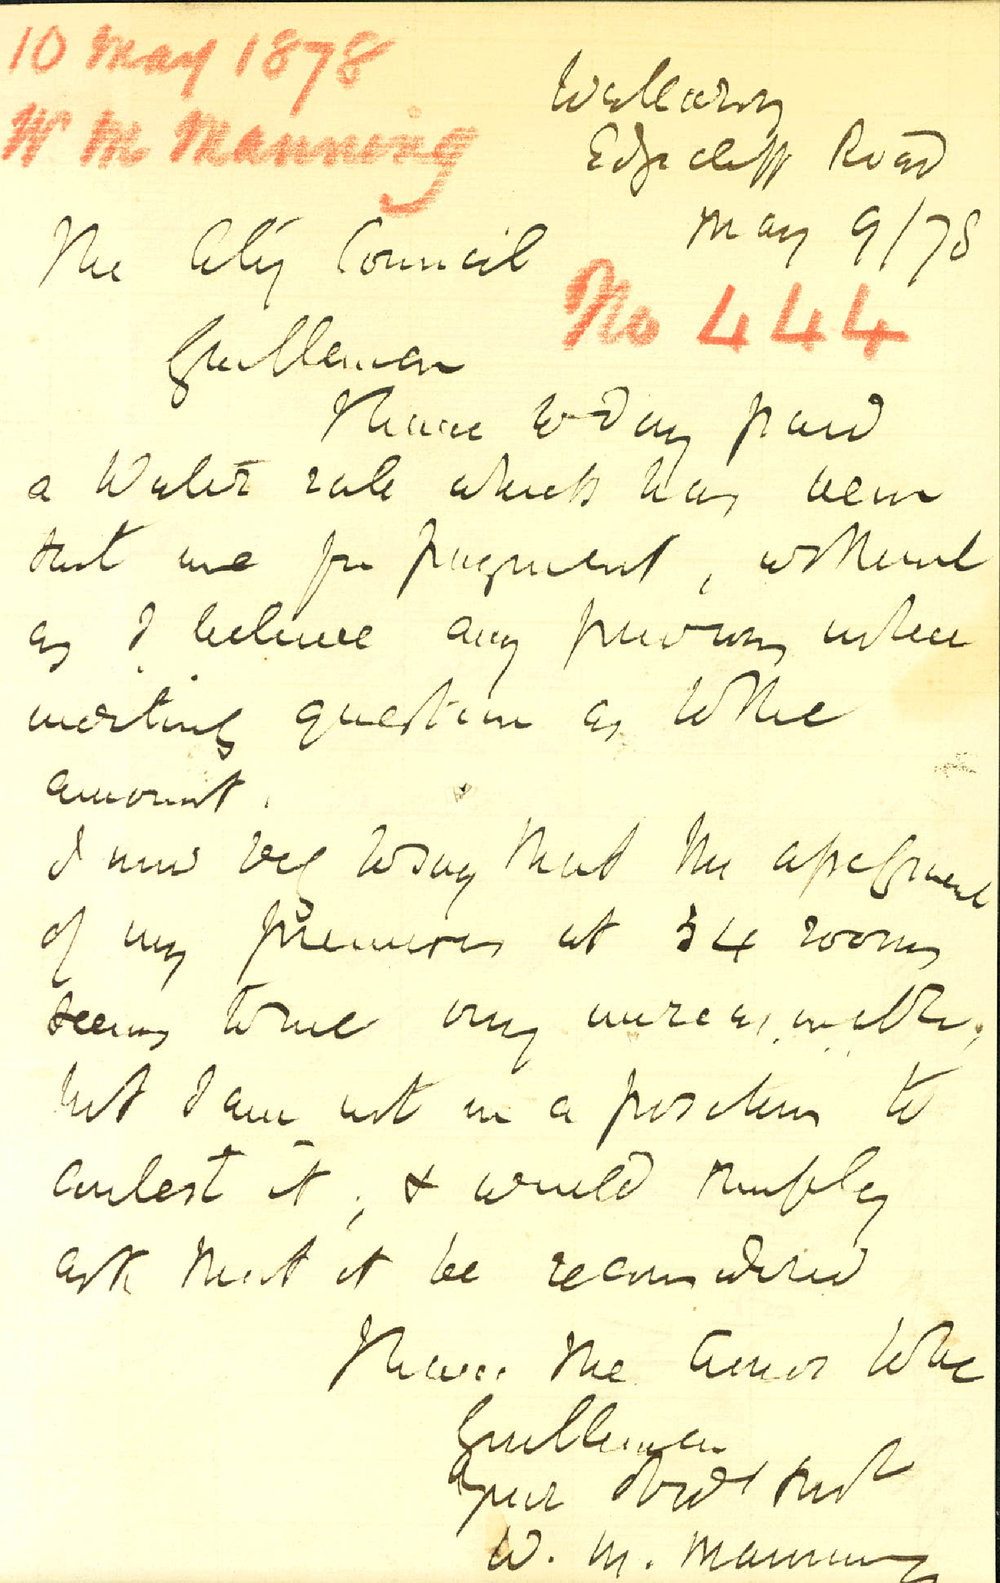 10 May 1878
W M Manning
Wallaroy
Edgecliff Road
May 9/78
The City Council
No 444
Gentlemen
I have to day paid
a Water rate which has been
sent me for payment, without
as I believe any previous
question as to the
amount.
I now beg to say that the assessment
of my premises at 34 rooms
seems to me very unreasonable,
but I am not in a position to
contest it, & would simply
ask that it be reconsidered
I have the honor to be
Gentlemen
Your Obedt Servt
W. M. Manning